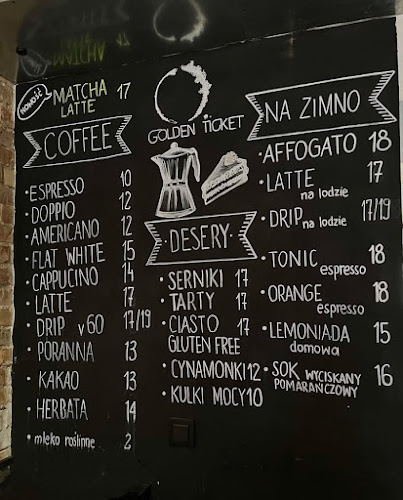 NOWOŚĆ
MATCHA 17
LATTE
COFFEE
• ESPRESSO 10
• DOPPIO 12
• AMERICANO 12
• FLAT WHITE 15
• CAPPUCINO 14
• LATTE 17
• DRIP v60 17/19
• PORANNA 13
• KAKAO 13
• HERBATA 14
• mleko roślinne 2
GOLDEN TICKET
DESERY
• SERNIKI 17
• TARTY 17
• CIASTO 17
GLUTEN FREE
• CYNAMONKI 12
• KULKI MOCY 10
NA ZIMNO
• AFFOGATO 18
• LATTE 17
na lodzie
• DRIP na lodzie 17/19
• TONIC 18
espresso
• ORANGE 18
espresso
• LEMONIADA 15
domowa
• SOK WYCISKANY 16
POMARAŃCZOWY